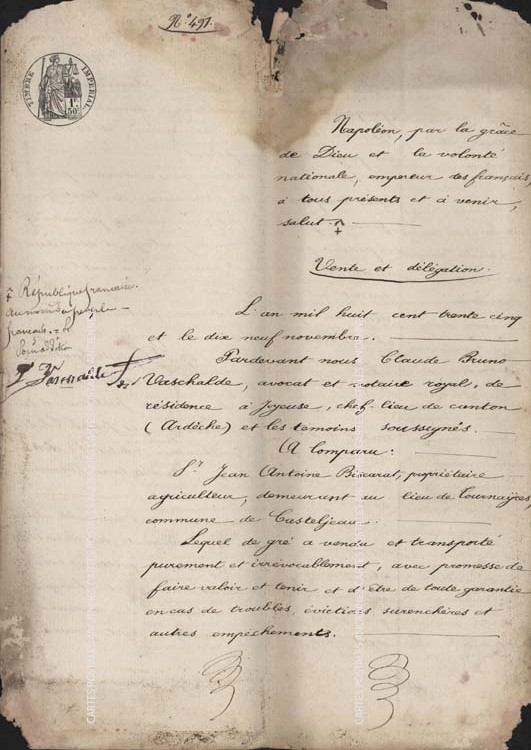 N° 497.
TIMBRE IMPERIAL
1F
50c
Napoléon, par la grâce
de Dieu et la volonté
nationale, empereur des français,
à tous présents et à venir,
salut.
Vente et délégation.
République française.
français.
L'an mil huit cent trente cinq
et le dix neuf novembre.
Pardevant nous Claude Bruno
Vaschalde, avocat et notaire royal, de
résidence à Joyeuse, chef-lieu de canton
(Ardèche) et les témoins soussignés.
(A Comparu:
Sr Jean Antoine Biscarat, propriétaire
agriculteur, demeurant au lieu de Tournaires,
commune de Casteljeau.
Lequel de gré a vendu et transporté
purement et irrévocablement, avec promesse de
faire valoir et tenir et d'être de toute garantie
en cas de troubles, évictions, surenchères et
autres empêchements.